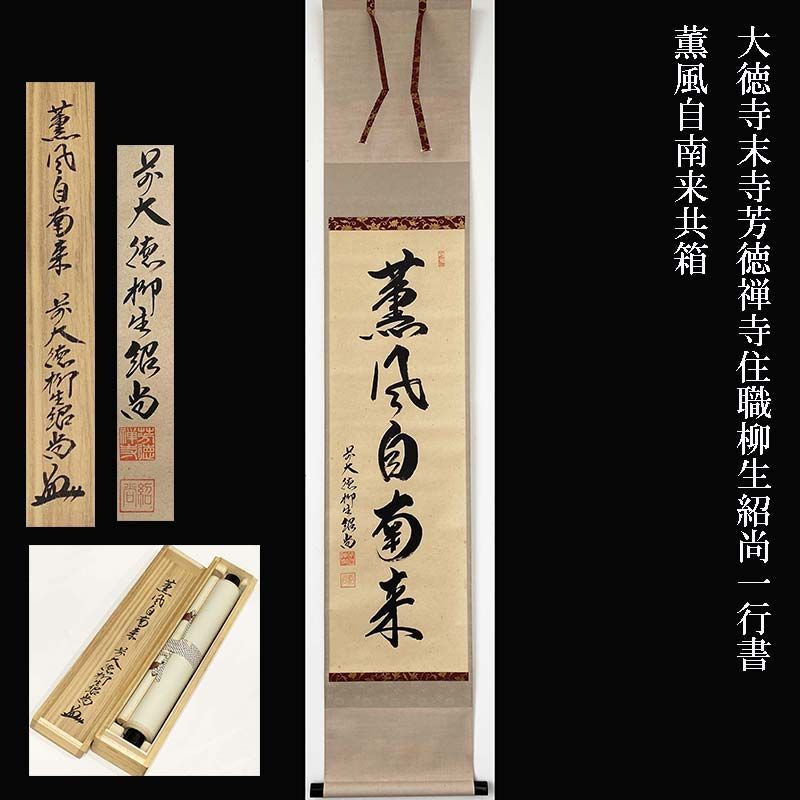 大徳寺末寺芳徳禅寺住職柳生紹尚一行書
薫風自南来共箱
薫風自南来
前大徳柳生紹尚
前大徳柳生紹尚
芳徳禅寺
紹尚
薫風自南来 前大徳柳生紹尚
薫風自南来 前大徳柳生紹尚